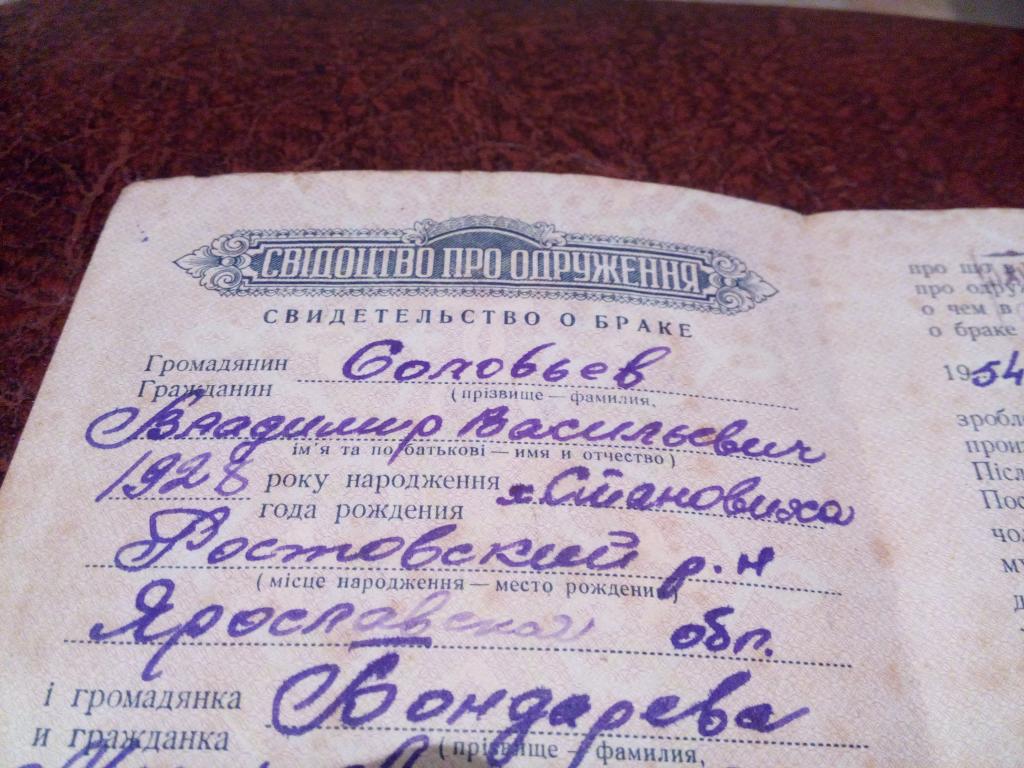 СВІДОЦТВО ПРО ОДРУЖЕННЯ
СВИДЕТЕЛЬСТВО О БРАКЕ
Громадянин
Гражданин Соловьев
(прізвище — фамилия,
Владимир Васильевич
ім'я та по батькові — имя и отчество)
1928 року народження х. Становиха
года рождения
Ростовский р.н
(місце народження — место рождения)
Ярославской обл.
і громадянка
и гражданка Бондарева
(прізвище — фамилия,
про що в
про одру
о чем в
о браке
1954
зробле
произ
Післ
Пос
чол
му